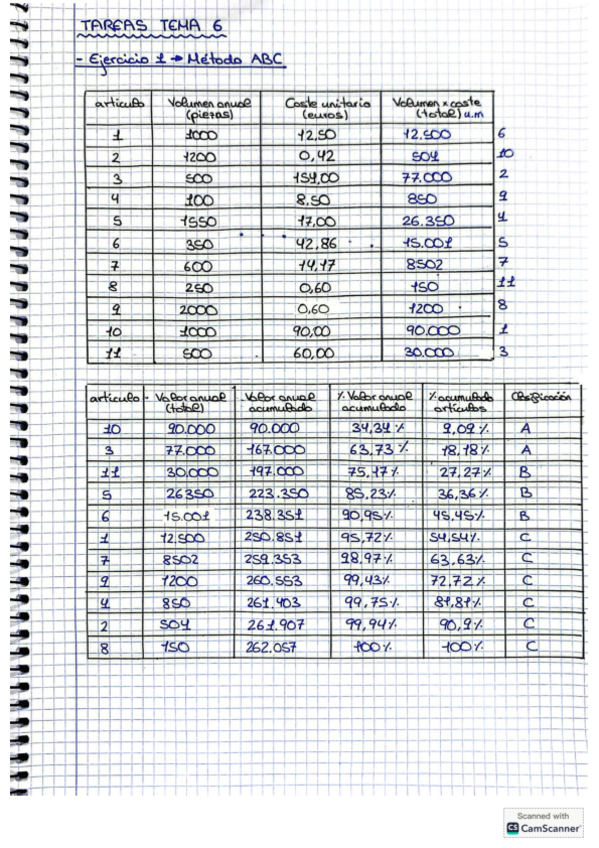 TAREAS TEMA 6
- Ejercicio 1 → Método ABC
artículo Volumen anual (piezas) Coste unitario (euros) Volumen x coste (total) u.m
1 1000 12,50 12.500 6
2 1200 0,42 504 10
3 500 154,00 77.000 2
4 100 8,50 850 9
5 1550 17,00 26.350 4
6 350 42,86 15.001 5
7 600 14,17 8502 7
8 250 0,60 150 11
9 2000 0,60 1200 8
10 1000 90,00 90.000 1
11 500 60,00 30.000 3
artículo - Valor anual (total) Valor anual acumulado % Valor anual acumulado % acumulado artículos Clasificación
10 90.000 90.000 34,34% 9,09% A
3 77.000 167.000 63,73% 18,18% A
11 30.000 197.000 75,17% 27,27% B
5 26350 223.350 85,23% 36,36% B
6 15.001 238.351 90,95% 45,45% B
1 12,500 250.851 95,72% 54,54% C
7 8502 259.353 98,97% 63,63% C
9 1200 260.553 99,43% 72,72% C
4 850 261.403 99,75% 81,81% C
2 504 261.907 99,94% 90,9% C
8 150 262.057 100% 100% C
Scanned with
CS CamScanner